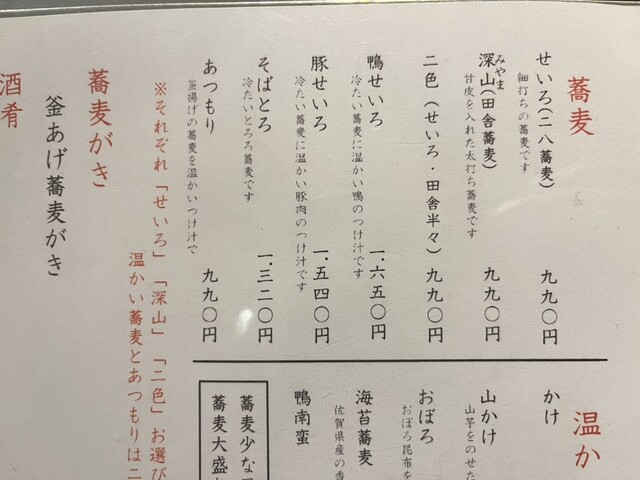 蕎麦
せいろ(二八蕎麦) 九九〇円
細打ちの蕎麦です
深山(田舎蕎麦) 九九〇円
みやま
甘皮を入れた太打ち蕎麦です
二色(せいろ・田舎半々) 九九〇円
鴨せいろ 一.六五〇円
冷たい蕎麦に温かい鴨のつけ汁です
豚せいろ 一.五四〇円
冷たい蕎麦に温かい豚肉のつけ汁です
そばとろ 一.三二〇円
冷たいとろろ蕎麦です
あつもり 九九〇円
釜揚げの蕎麦を温かいつけ汁で
※それぞれ「せいろ」「深山」「二色」お選び
温かい蕎麦とあつもりは二
蕎麦がき
釜あげ蕎麦がき
酒肴
温か
かけ
山かけ
山芋をのせた
おぼろ
おぼろ昆布を
海苔蕎麦
佐賀県産の香
鴨南蛮
蕎麦少な
蕎麦大盛